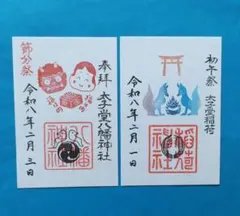 節分祭
奉拝 太子堂八幡神社
令和八年二月三日
八幡神社
初午祭 太子堂稲荷
令和八年二月一日
稲荷社